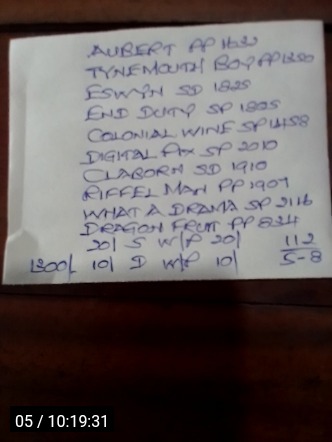 AUBERT PP 1630
TYNEMOUTH BOY PP 1350
ESWYN SD 1825
END DUTY SP 1805
COLONIAL WINE SP 1458
DIGITAL FIX SP 2010
CLABORN SD 1910
RIFFEL MAN PP 1907
WHAT A DRAMA SP 2116
DRAGON FRUIT PP 834
20/ S W/P 20/ 112
1300/ 10/ D W/P 10/ 5-8
05 / 10:19:31